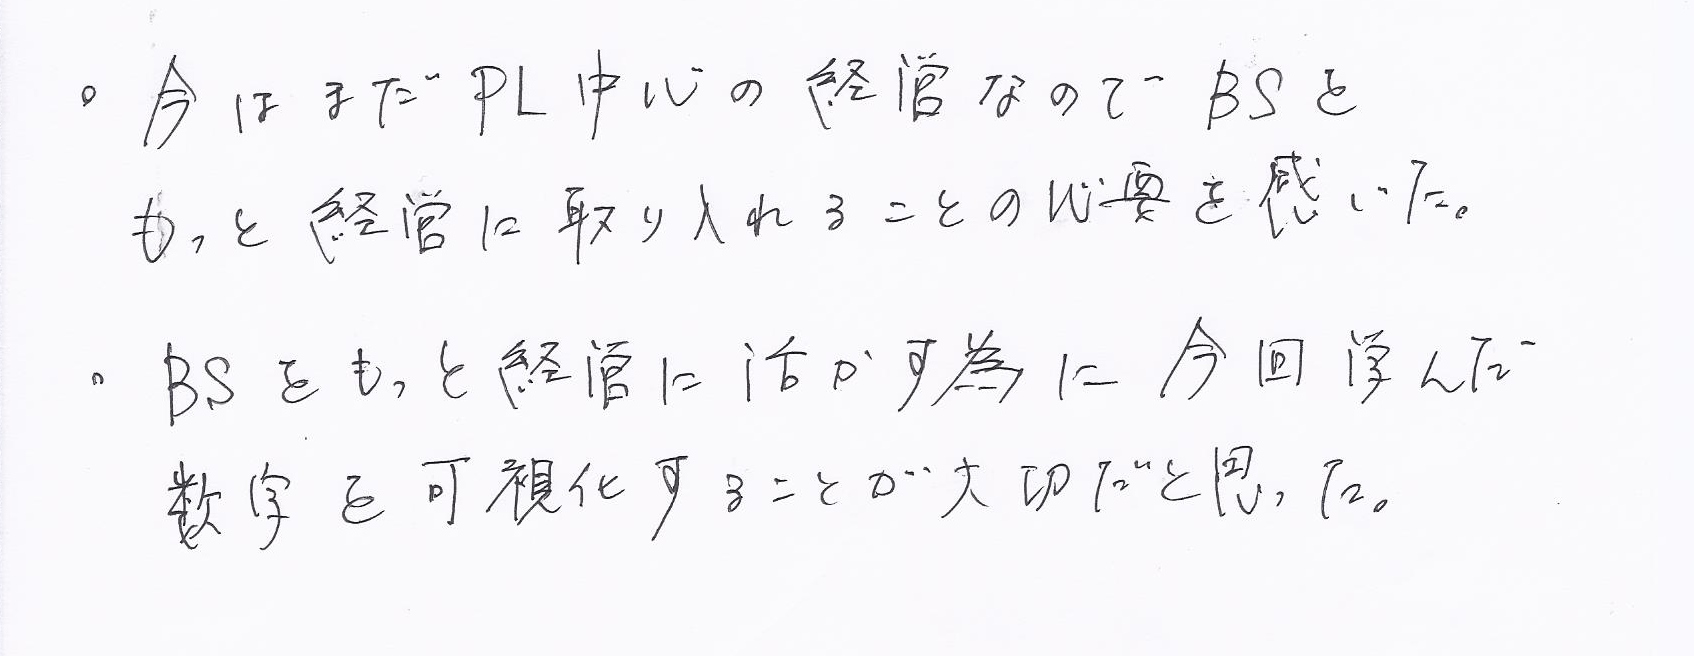 。今はまだPL中心の経営なのでBSを
もっと経営に取り入れることの必要を感じた。
。BSをもっと経営に活かす為に今回学んだ
数字を可視化することが大切だと思った。